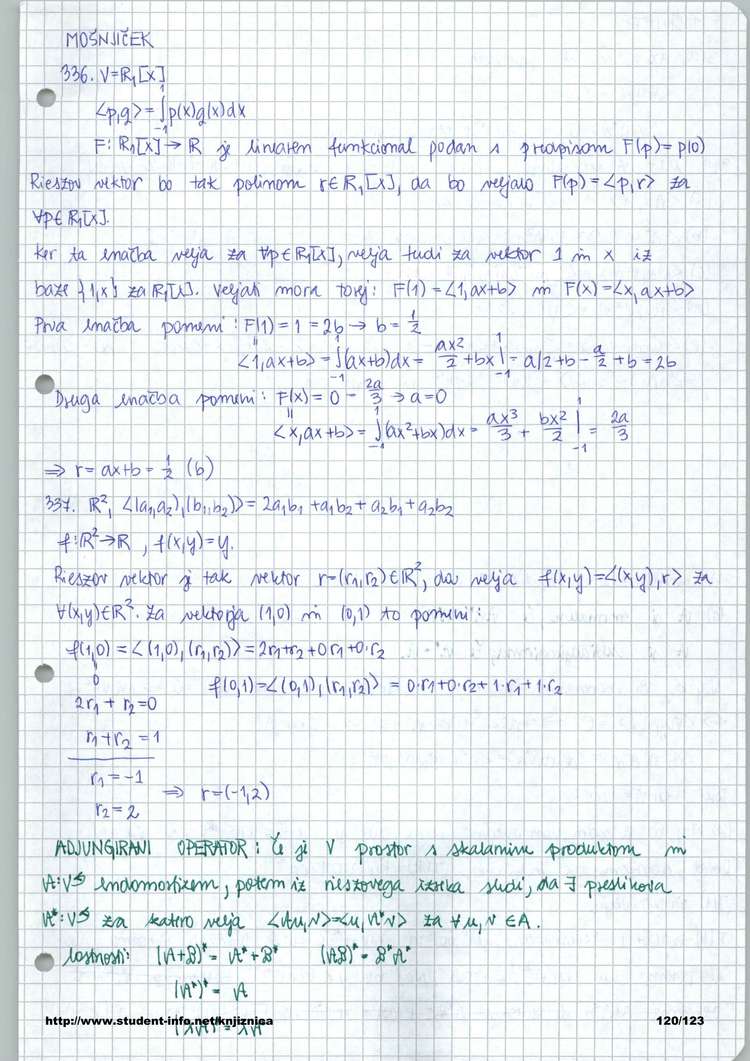 MOŠNJIČEK
336. V=ℝ₁[x]
<p,q> = ∫₋₁¹ p(x)q(x)dx
F: ℝ₁[x] → ℝ je linearen funkcional podan s predpisom F(p) = p(0)
Rieszov vektor bo tak polinom r∈ℝ₁[x], da bo veljalo F(p) = <p,r> za
∀p∈ℝ₁[x].
Ker ta enačba velja za ∀p∈ℝ₁[x], velja tudi za vektor 1 in x iz
baze {1,x} za ℝ₁[x]. Veljati mora torej: F(1) = <1,ax+b> in F(x) = <x,ax+b>
Prva enačba pomeni: F(1) = 1 = 2b → b = 1/2
<1,ax+b> = ∫₋₁¹(ax+b)dx = ax²/2 + bx |₋₁¹ = a/2 + b - a/2 + b = 2b
Druga enačba pomeni: F(x) = 0 - 2a/3 → a=0
<x,ax+b> = ∫₋₁¹(ax²+bx)dx = ax³/3 + bx²/2 |₋₁¹ = 2a/3
⇒ r = ax+b = 1/2 (b)
337. ℝ², <(a₁,a₂),(b₁,b₂)> = 2a₁b₁ + a₁b₂ + a₂b₁ + a₂b₂
f: ℝ² → ℝ, f(x,y) = y.
Rieszov vektor je tak vektor r=(r₁,r₂)∈ℝ², da velja f(x,y) = <(x,y),r> za
∀(x,y)∈ℝ². Za vektorja (1,0) in (0,1) to pomeni:
f(1,0) = <(1,0),(r₁,r₂)> = 2r₁+r₂+0r₁+0·r₂
0
f(0,1) = <(0,1),(r₁,r₂)> = 0·r₁+0·r₂+1·r₁+1·r₂
2r₁ + r₂ = 0
r₁ + r₂ = 1
r₁ = -1
⇒ r=(-1,2)
r₂ = 2
ADJUNGIRANI OPERATOR: Če je V prostor s skalarnim produktom in
A:V↺ endomorfizem, potem iz rieszovega izreka sledi, da ∃ preslikava
A*:V↺ za katero velja <Au,v> = <u,A*v> za ∀u,v ∈ A.
lastnosti: (A+B)* = A* + B* (AB)* = B*A*
(A*)* = A
(λA)* = λA*
http://www.student-info.net/knjiznica
120/123